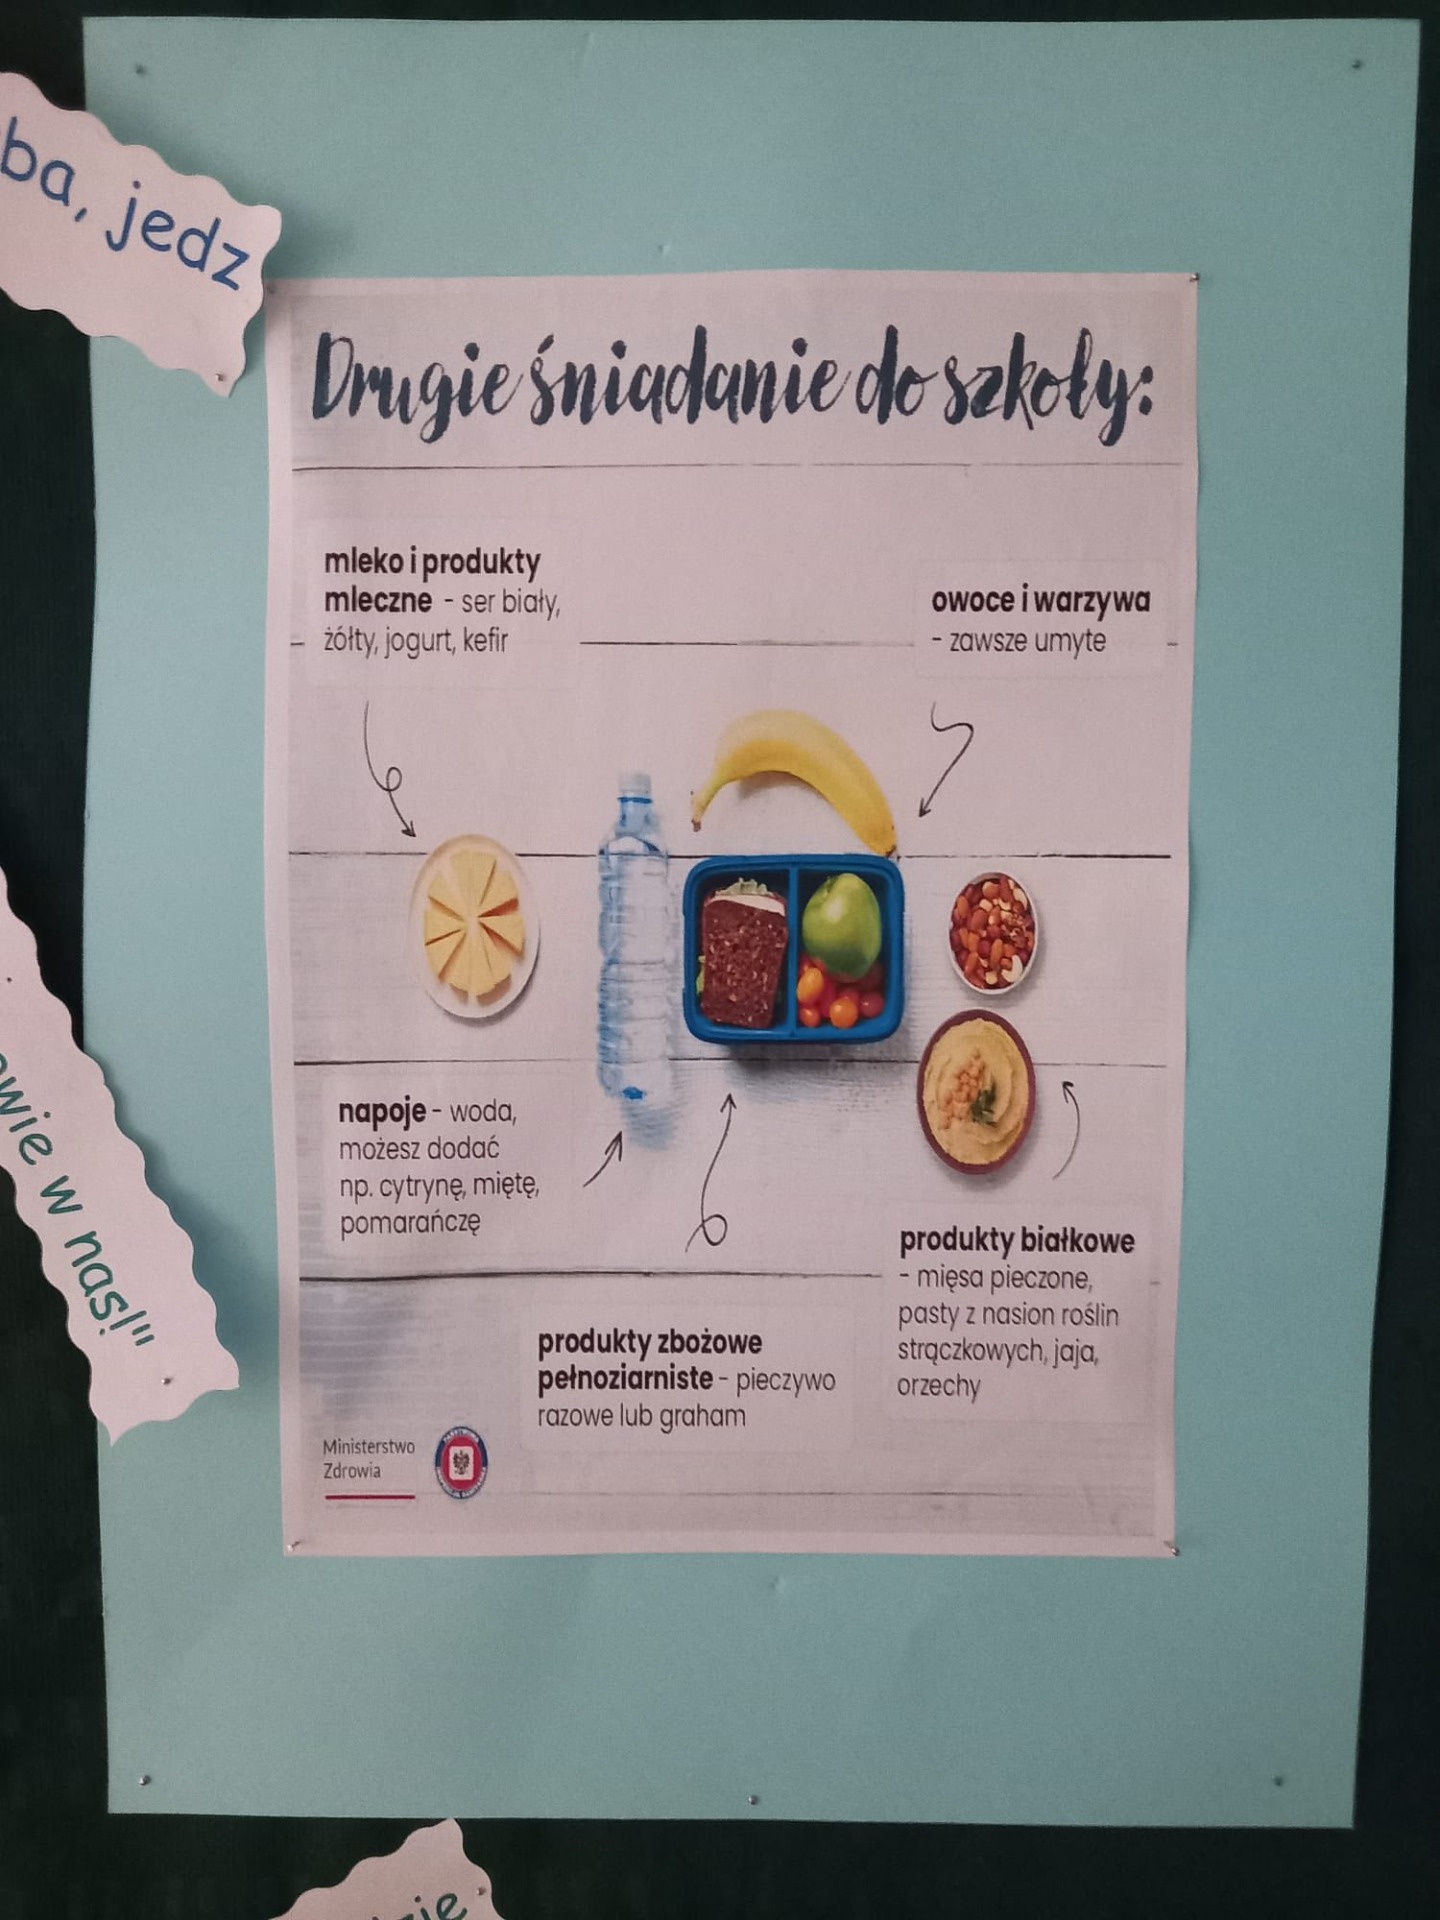 ba, jedz
Drugie śniadanie do szkoły:
mleko i produkty
mleczne - ser biały,
żółty, jogurt, kefir
owoce i warzywa
- zawsze umyte
napoje - woda,
możesz dodać
np. cytrynę, miętę,
pomarańczę
produkty białkowe
- mięsa pieczone,
pasty z nasion roślin
strączkowych, jaja,
orzechy
produkty zbożowe
pełnoziarniste - pieczywo
razowe lub graham
Ministerstwo
Zdrowia
owie w nas!"